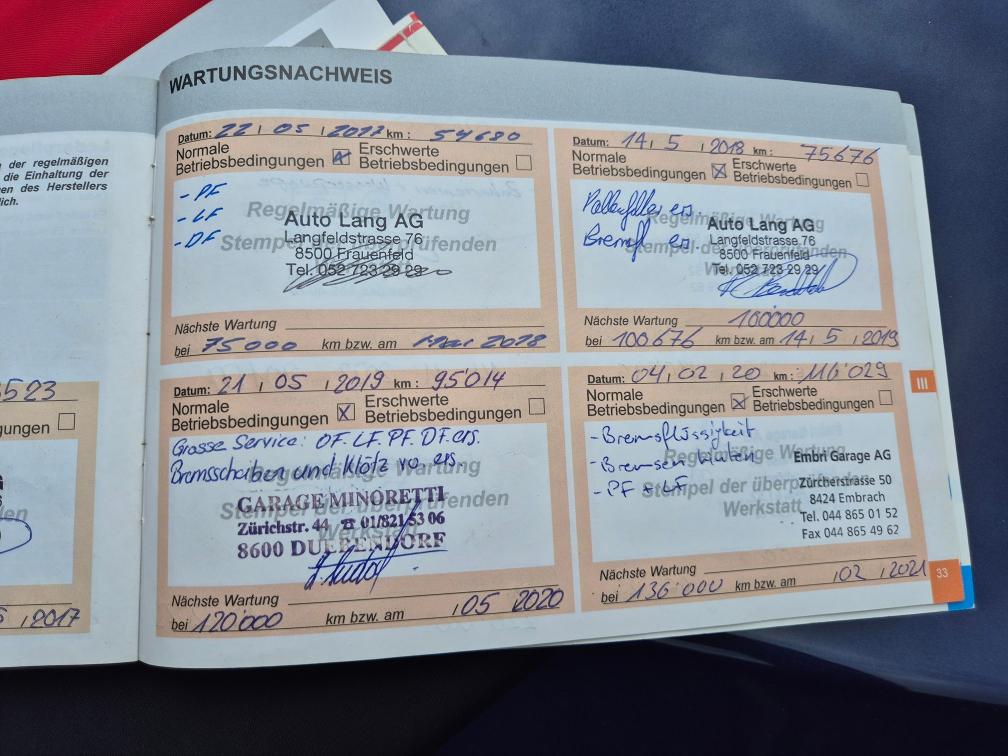 WARTUNGSNACHWEIS
der regelmäßigen
die Einhaltung der
des Herstellers
lich.
Datum: 22 05 2017 km: 54680
Normale Betriebsbedingungen Erschwerte Betriebsbedingungen
- PF
- LF
- DF
Regelmäßige Wartung
Stempel der überprüfenden
Auto Lang AG
Langfeldstrasse 76
8500 Frauenfeld
Tel. 052 723 29 29
Nächste Wartung
bei 75000 km bzw. am Mai 2018
Datum: 14. 5 2018 km: 75676
Normale Betriebsbedingungen Erschwerte Betriebsbedingungen
Pollenfilter ers.
Bremsfl ers.
Regelmäßige Wartung
Stempel der überprüfenden
Werkstatt
Auto Lang AG
Langfeldstrasse 76
8500 Frauenfeld
Tel. 052 723 29 29
Nächste Wartung 100000
bei 100'676 km bzw. am 14. 5 2019
5523
ngungen
2017
Datum: 21 05 2019 km: 95'014
Normale Betriebsbedingungen Erschwerte Betriebsbedingungen
Grosse Service: OF. LF. PF. DF. ers.
Bremsscheiben und Klötz vo. ers.
Regelmäßige Wartung
Stempel der überprüfenden
Werkstatt
GARAGE MINORETTI
Zürichstr. 44 ☎ 01/821 53 06
8600 DÜBENDORF
Nächste Wartung
bei 120'000 km bzw. am 05 2020
Datum: 04 02 20 km: 116'029
Normale Betriebsbedingungen Erschwerte Betriebsbedingungen
- Bremsflüssigkeit
- Bremsen
- PF + LF
Regelmäßige Wartung
Stempel der überprüfenden
Werkstatt
Embri Garage AG
Zürcherstrasse 50
8424 Embrach
Tel. 044 865 01 52
Fax 044 865 49 62
Nächste Wartung
bei 136'000 km bzw. am 02 2021
III
33